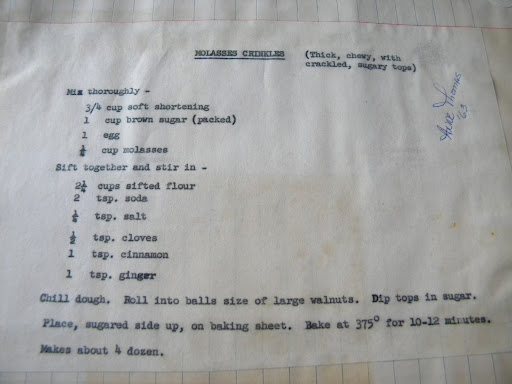 MOLASSES CRINKLES (Thick, chewy, with
crackled, sugary tops)
Mix thoroughly -
3/4 cup soft shortening
1 cup brown sugar (packed)
1 egg
¼ cup molasses
Sift together and stir in -
2¼ cups sifted flour
2 tsp. soda
¼ tsp. salt
½ tsp. cloves
1 tsp. cinnamon
1 tsp. ginger
Chill dough. Roll into balls size of large walnuts. Dip tops in sugar.
Place, sugared side up, on baking sheet. Bake at 375° for 10-12 minutes.
Makes about 4 dozen.
Thomas
'63